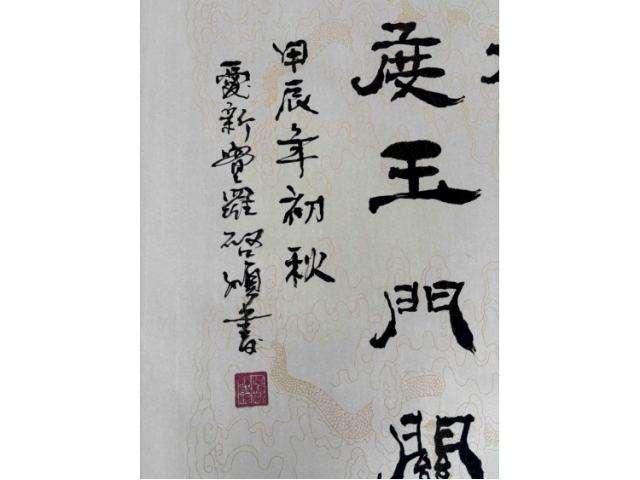 度王門關
甲辰年初秋
愛新覺羅啓書